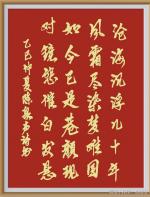 沧海沉浮九十年
风霜尽染梦难圆
如今已是苍颜现
对镜愁催白发悬
乙巳仲夏